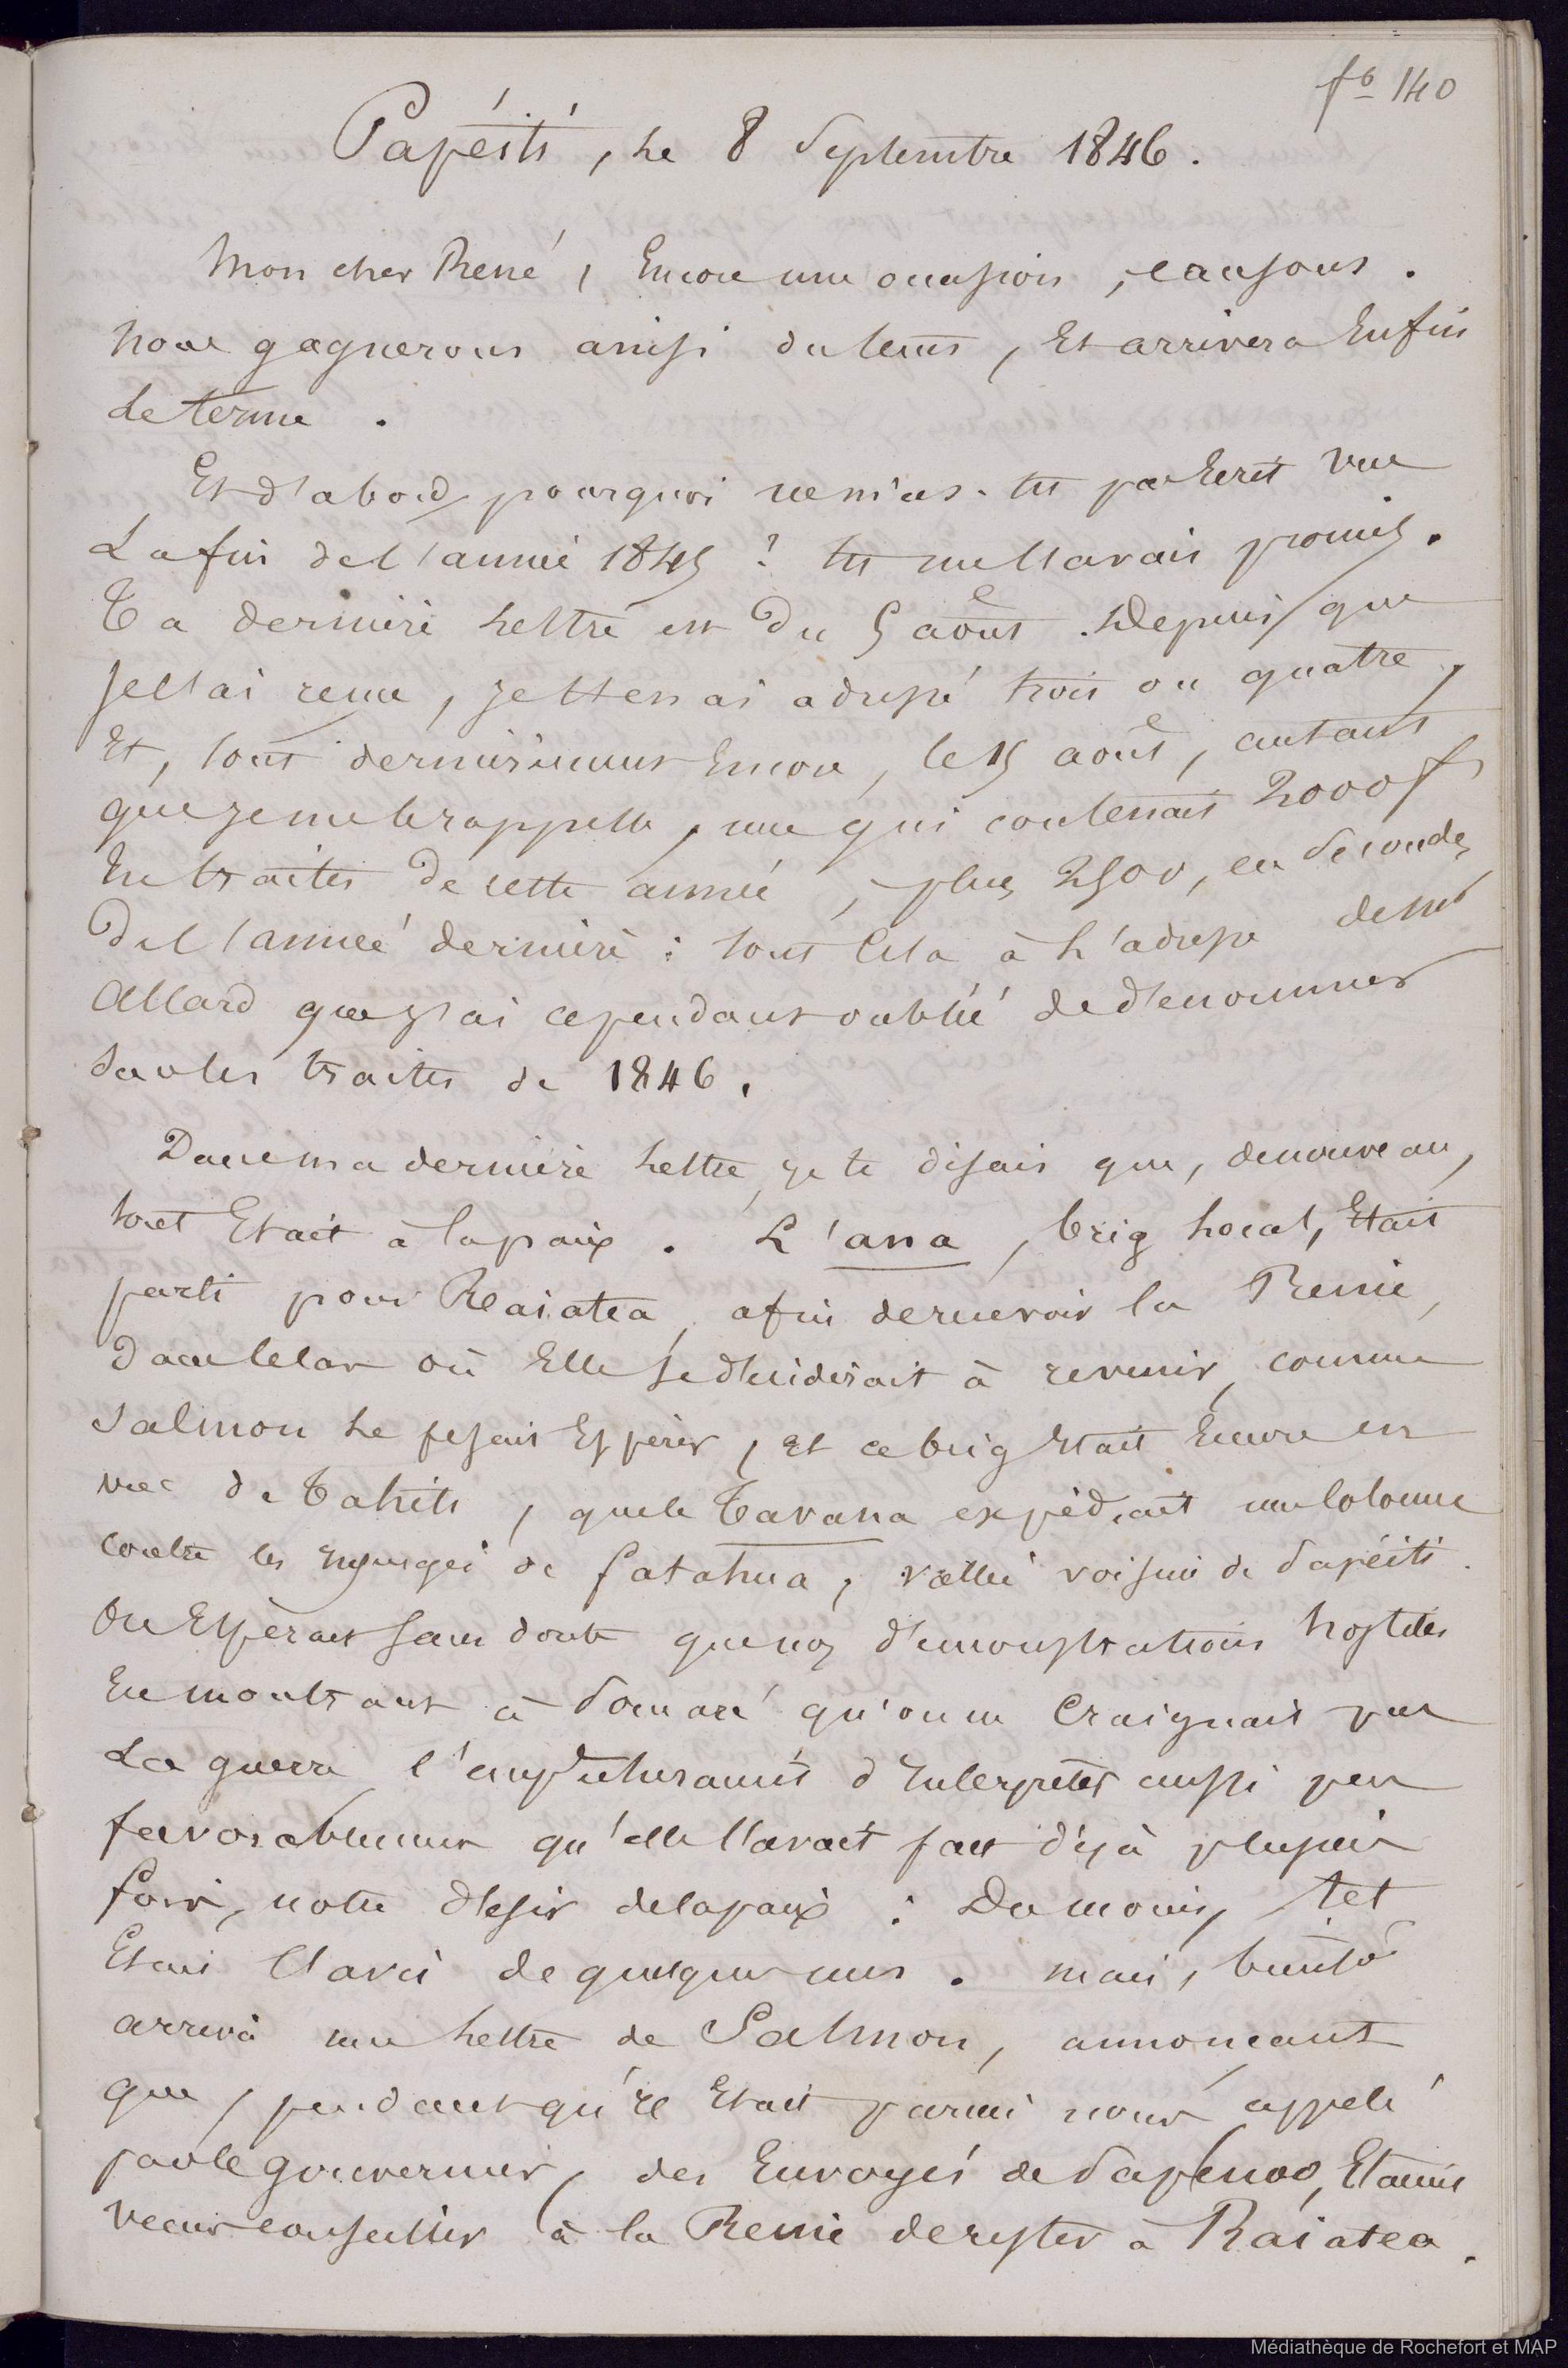 fo 140
Papéiti, Le 8 Septembre 1846.
Mon cher René, Encore une occasion, causons.
Nous gagnerons ainsi du tems, Et arrivera Enfin
le terme.
Et d'abord, pourquoi ne m'as-tu pas Ecrit vers
La fin de l'année 1845 ? tu me l'avais promis.
Ta dernière Lettre est du 5 août. Depuis que
je l'ai reçue, je t'en ai adressé trois ou quatre,
Et, tout dernièrement Encore, le 15 août, autant
que je me le rappelle, une qui contenait 2000 f
En traites de cette année, plus 2500, en Secondes
de l'année dernière : tout Cela à L'adresse de
Allard que j'ai cependant oublié de dénommer
sur les traites de 1846.
Dans ma dernière Lettre, je te disais que, de nouveau,
tout Etait à la paix. L'ana, brig Local, Etait
parti pour Raiatea, afin de recevoir la Reine,
dans le cas où Elle se déciderait à revenir, comme
Salmon Le fesait Espérer, Et ce brig Etait Encore en
vue de Tahiti, que le Tavana expédiait une Colonne
contre les insurgés de Fatahua, vallée voisine de Papéiti.
On Espérait sans doute que nos démonstrations hostiles
En montrant à Pomaré qu'on ne Craignait pas
La guerre l'empêcheraient d'Interpréter aussi peu
favorablement qu'elle l'avait fait déjà plusieurs
fois, notre désir de la paix : Du moins, tel
Etait l'avis de quelques uns. Mais, bientôt
arriva une Lettre de Salmon, annonçant
que, pendant qu'il Etait parmi nous appelé
par le gouverneur, des Envoyés de Papenoo, Etaient
venus conseiller à la Reine de rester à Raiatea.
Médiathèque de Rochefort et MAP